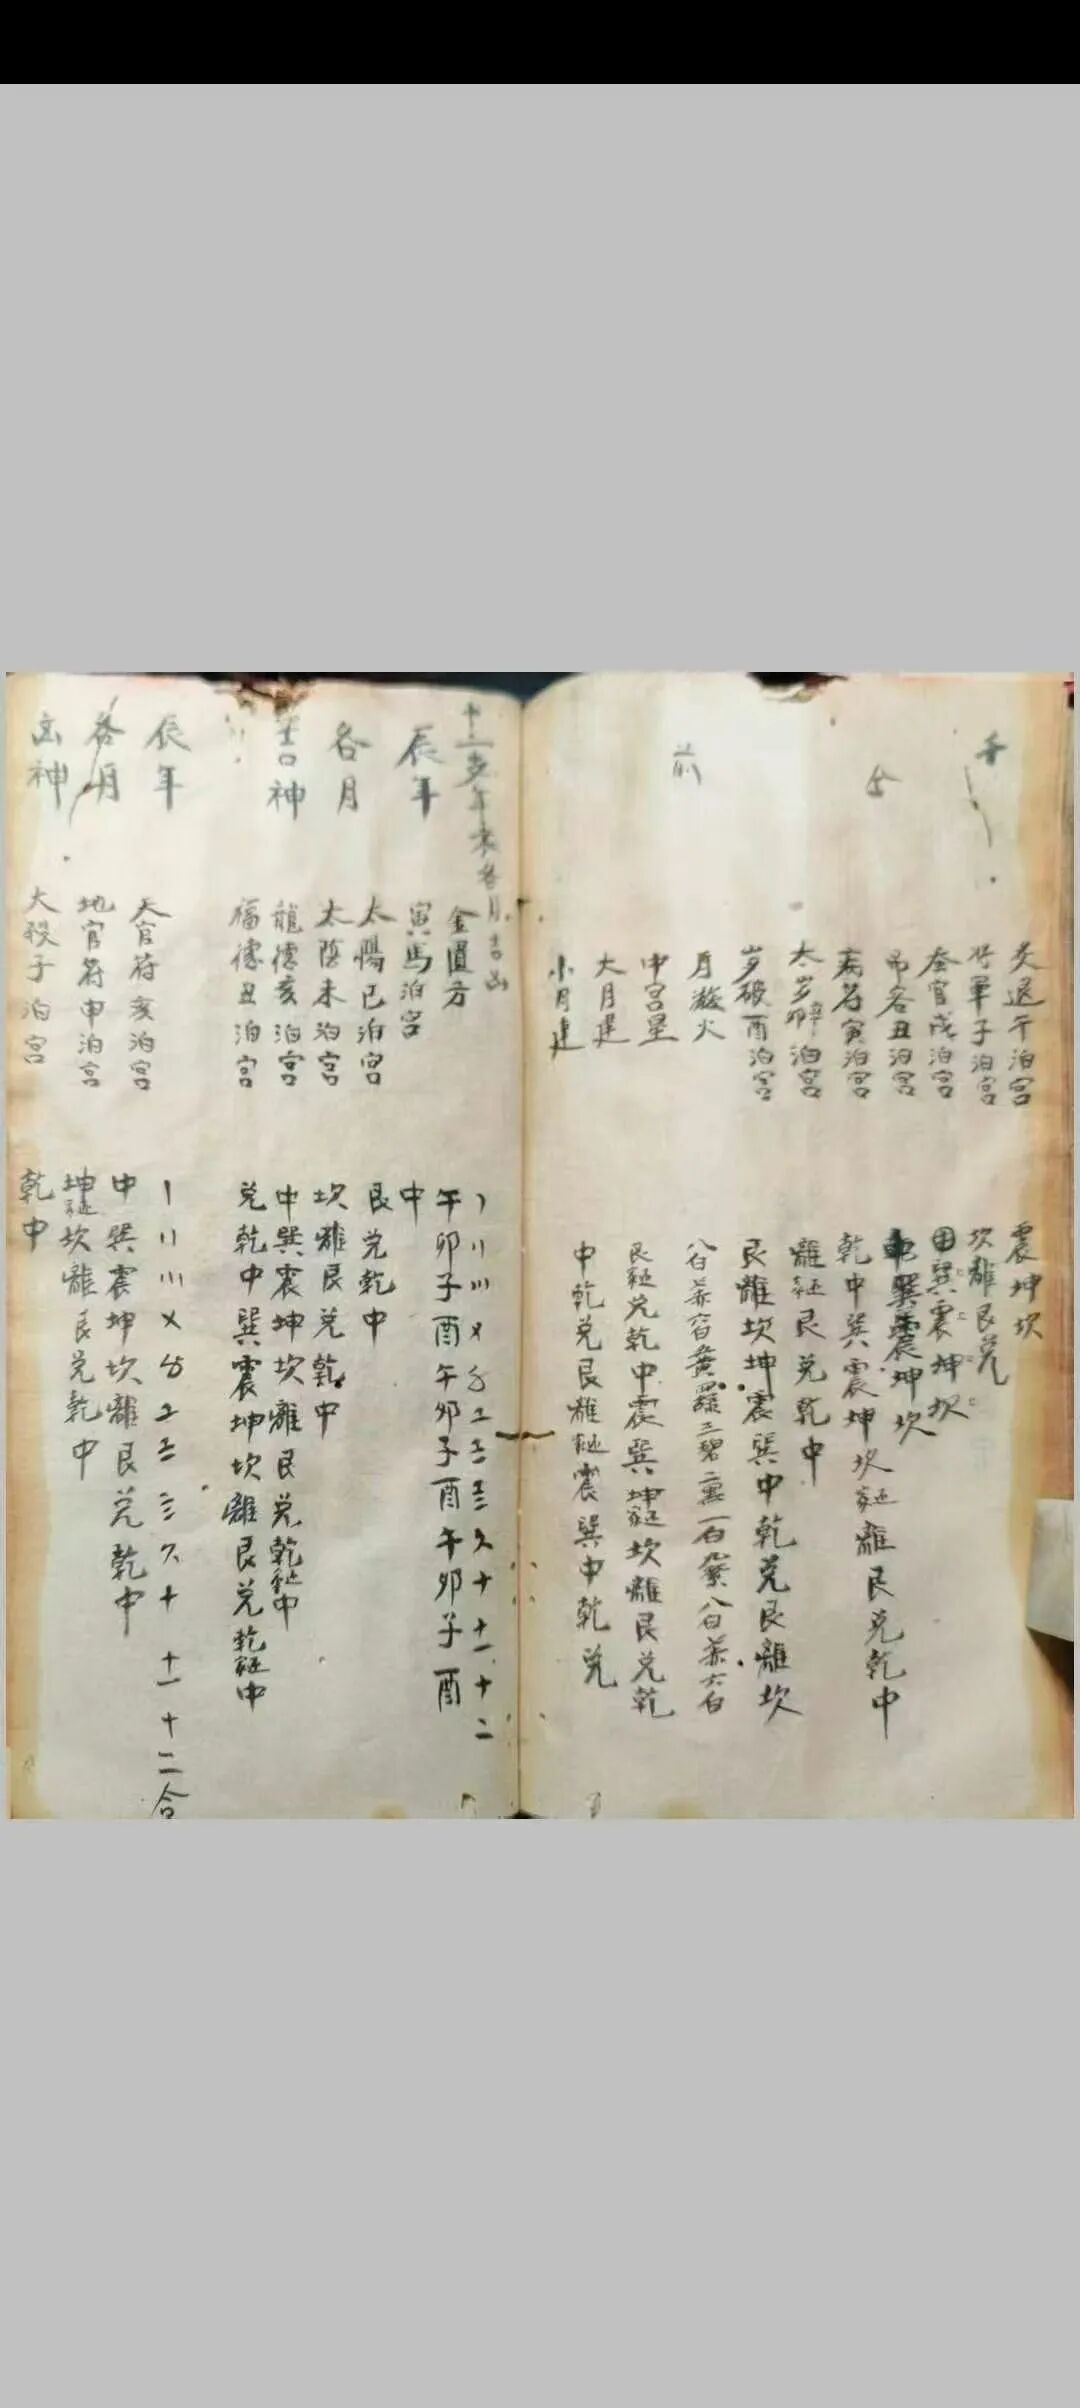 炙退午泊宫 震坤坎
將軍子泊宫 坎離艮兑
奎官戌泊宫 中巽震坤坎
吊客丑泊宫 巽震坤坎
病符寅泊宫 乾中巽震坤坎 離艮兑乾中
太岁卯泊宫 離 艮兑乾中
岁破酉泊宫 艮離坎坤震巽中乾兑艮離坎
月游火
中宫星 八白 三碧 一白 八白 六白
大月建 艮 兑乾中震巽坤 坎離艮兑乾
小月建 中乾兑艮離 震巽中乾兑
前
十二支年末各月吉凶
〡〢〣〤 十 十一 十二
金匮方 午卯子酉午卯子酉午卯子酉
辰年 寅馬泊宫 中
太陽巳泊宫 艮兑乾中
各月 太陰未泊宫 坎離艮兑乾中
吉神 龍德亥泊宫 中巽震坤坎離艮兑乾 中
福德丑泊宫 兑乾中巽震坤坎離艮兑乾 中
辰年 〡〢〣〤 十 十一 十二合
天官符亥泊宫 中巽震坤坎離艮兑乾中
各月 地官符申泊宫 坤 坎離艮兑乾中
凶神 大殺子泊宫 乾中